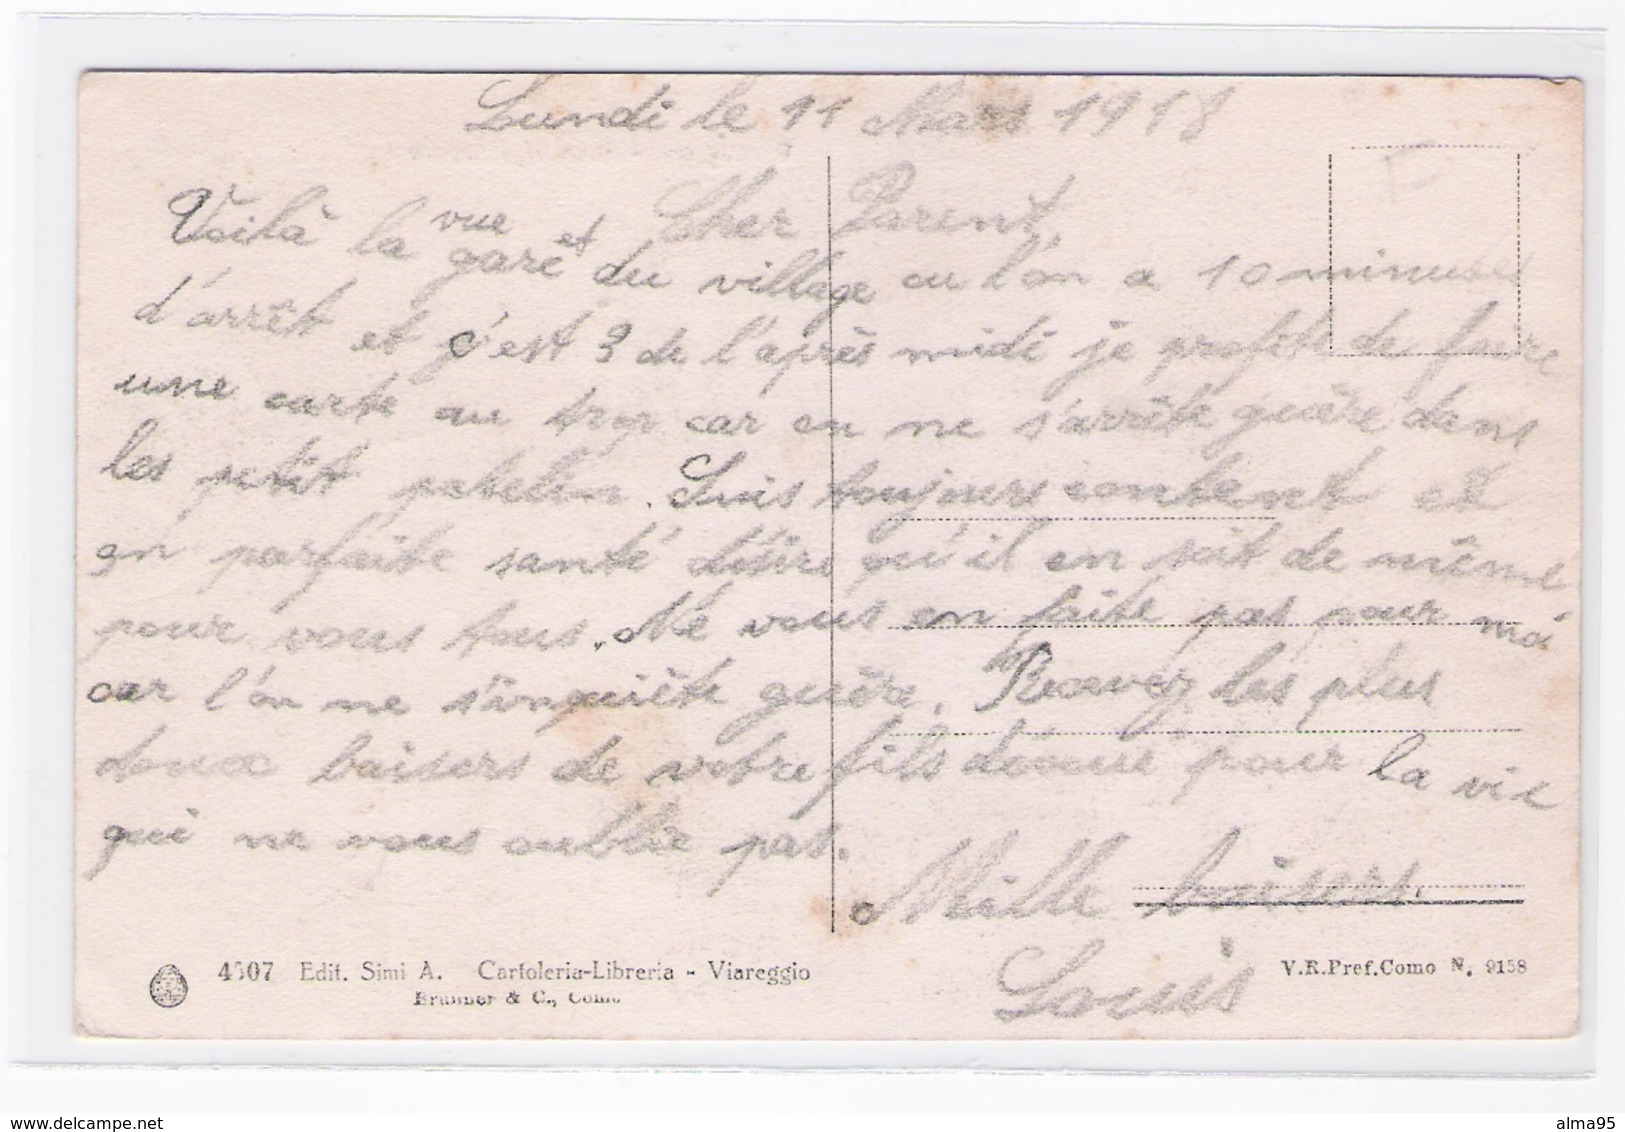 Lundi le 11 Mars 1918
Cher Parent.
Voilà la vue gare et du village ou l'on a 10 minutes
d'arrêt et c'est 3 de l'après midi je profite de faire
une carte au trop car on ne s'arrête guère dans
les petit patelin. Suis toujours content et
en parfaite santé désire qu'il en soit de même
pour vous tous. Ne vous en faite pas pour moi
car l'on ne s'inquiète guère. Recevez les plus
doux baisers de votre fils dévoué pour la vie
qui ne vous oublie pas.
Mille baisers.
Louis
4507 Edit. Simi A. Cartoleria-Libreria - Viareggio
Brunner & C., Como
V.R.Pref.Como N. 9158
F
alma95